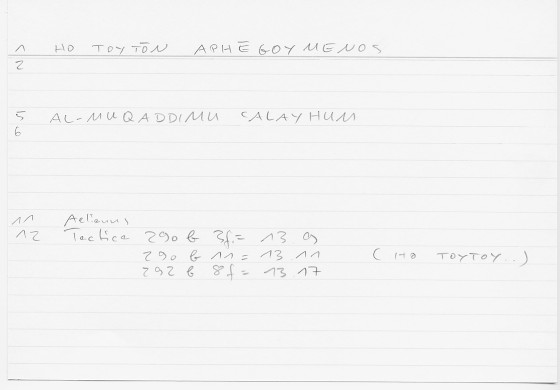 1 HO TOYTŌN APHĒGOYMENOS
2
5 AL-MUQADDIMU ʿALAYHUM
6
11 Aelianus
12 Tactica 290 b 3f. = 13 9
290 b 11 = 13 11 (HO TOYTOY..)
292 b 8f = 13 17